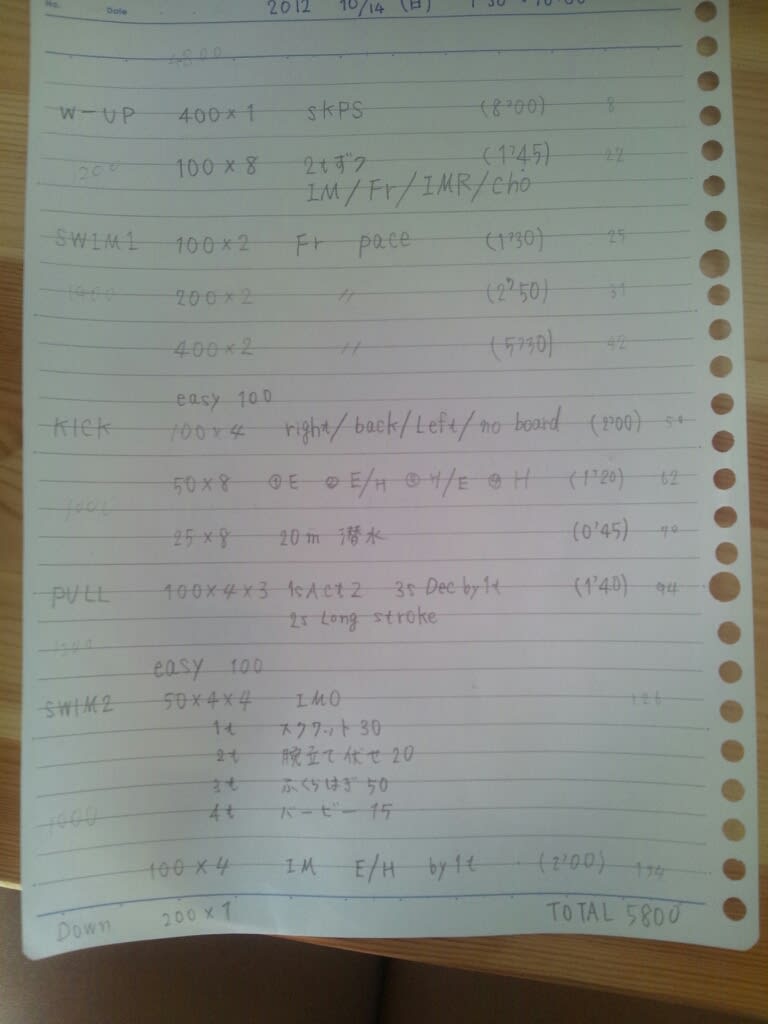 No.
Date
2012 10/14 (日)
4800
W-UP 400×1 SKPS (8'00) 8
200 100×8 2tずつ (1'45) 22
IM/Fr/IMR/cho
SWIM1 100×2 Fr pace (1'30) 25
200×2 〃 (2'50) 31
400×2 〃 (5'30) 42
easy 100
KICK 100×4 right/back/Left/no board (2'00)
50×8 ①E ②E/H ③H/E ④H (1'20) 62
25×8 20m 潜水 (0'45) 70
PULL 100×4×3 1s Act2 3s Dec by 1t (1'40) 94
2s Long stroke
easy 100
SWIM2 50×4×4 IMO 126
1t スクワット 30
2t 腕立て伏せ 20
3t ふくらはぎ 50
4t バーピー 15
1000
100×4 IM E/H by 1t (2'00) 134
Down 200×1 TOTAL 5800